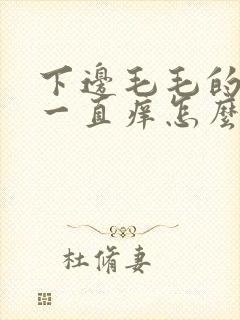 下邊毛毛的
一直痒怎麼
杜脩妻